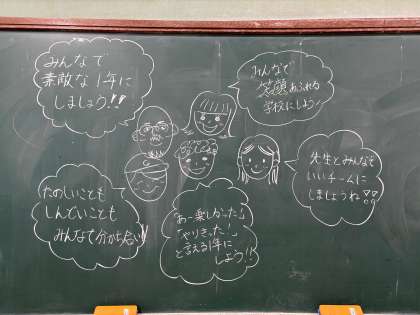 みんなで
素敵な1年に
しましょう!!
みんなで
笑顔あふれる
学校にしよう!
先生とみんなで
いいチームに
しましょうね!!
たのしいことも
しんどいことも
みんなで分かち合い
「あー楽しかった」
「やりきった!」
と言える1年に
しよう!!